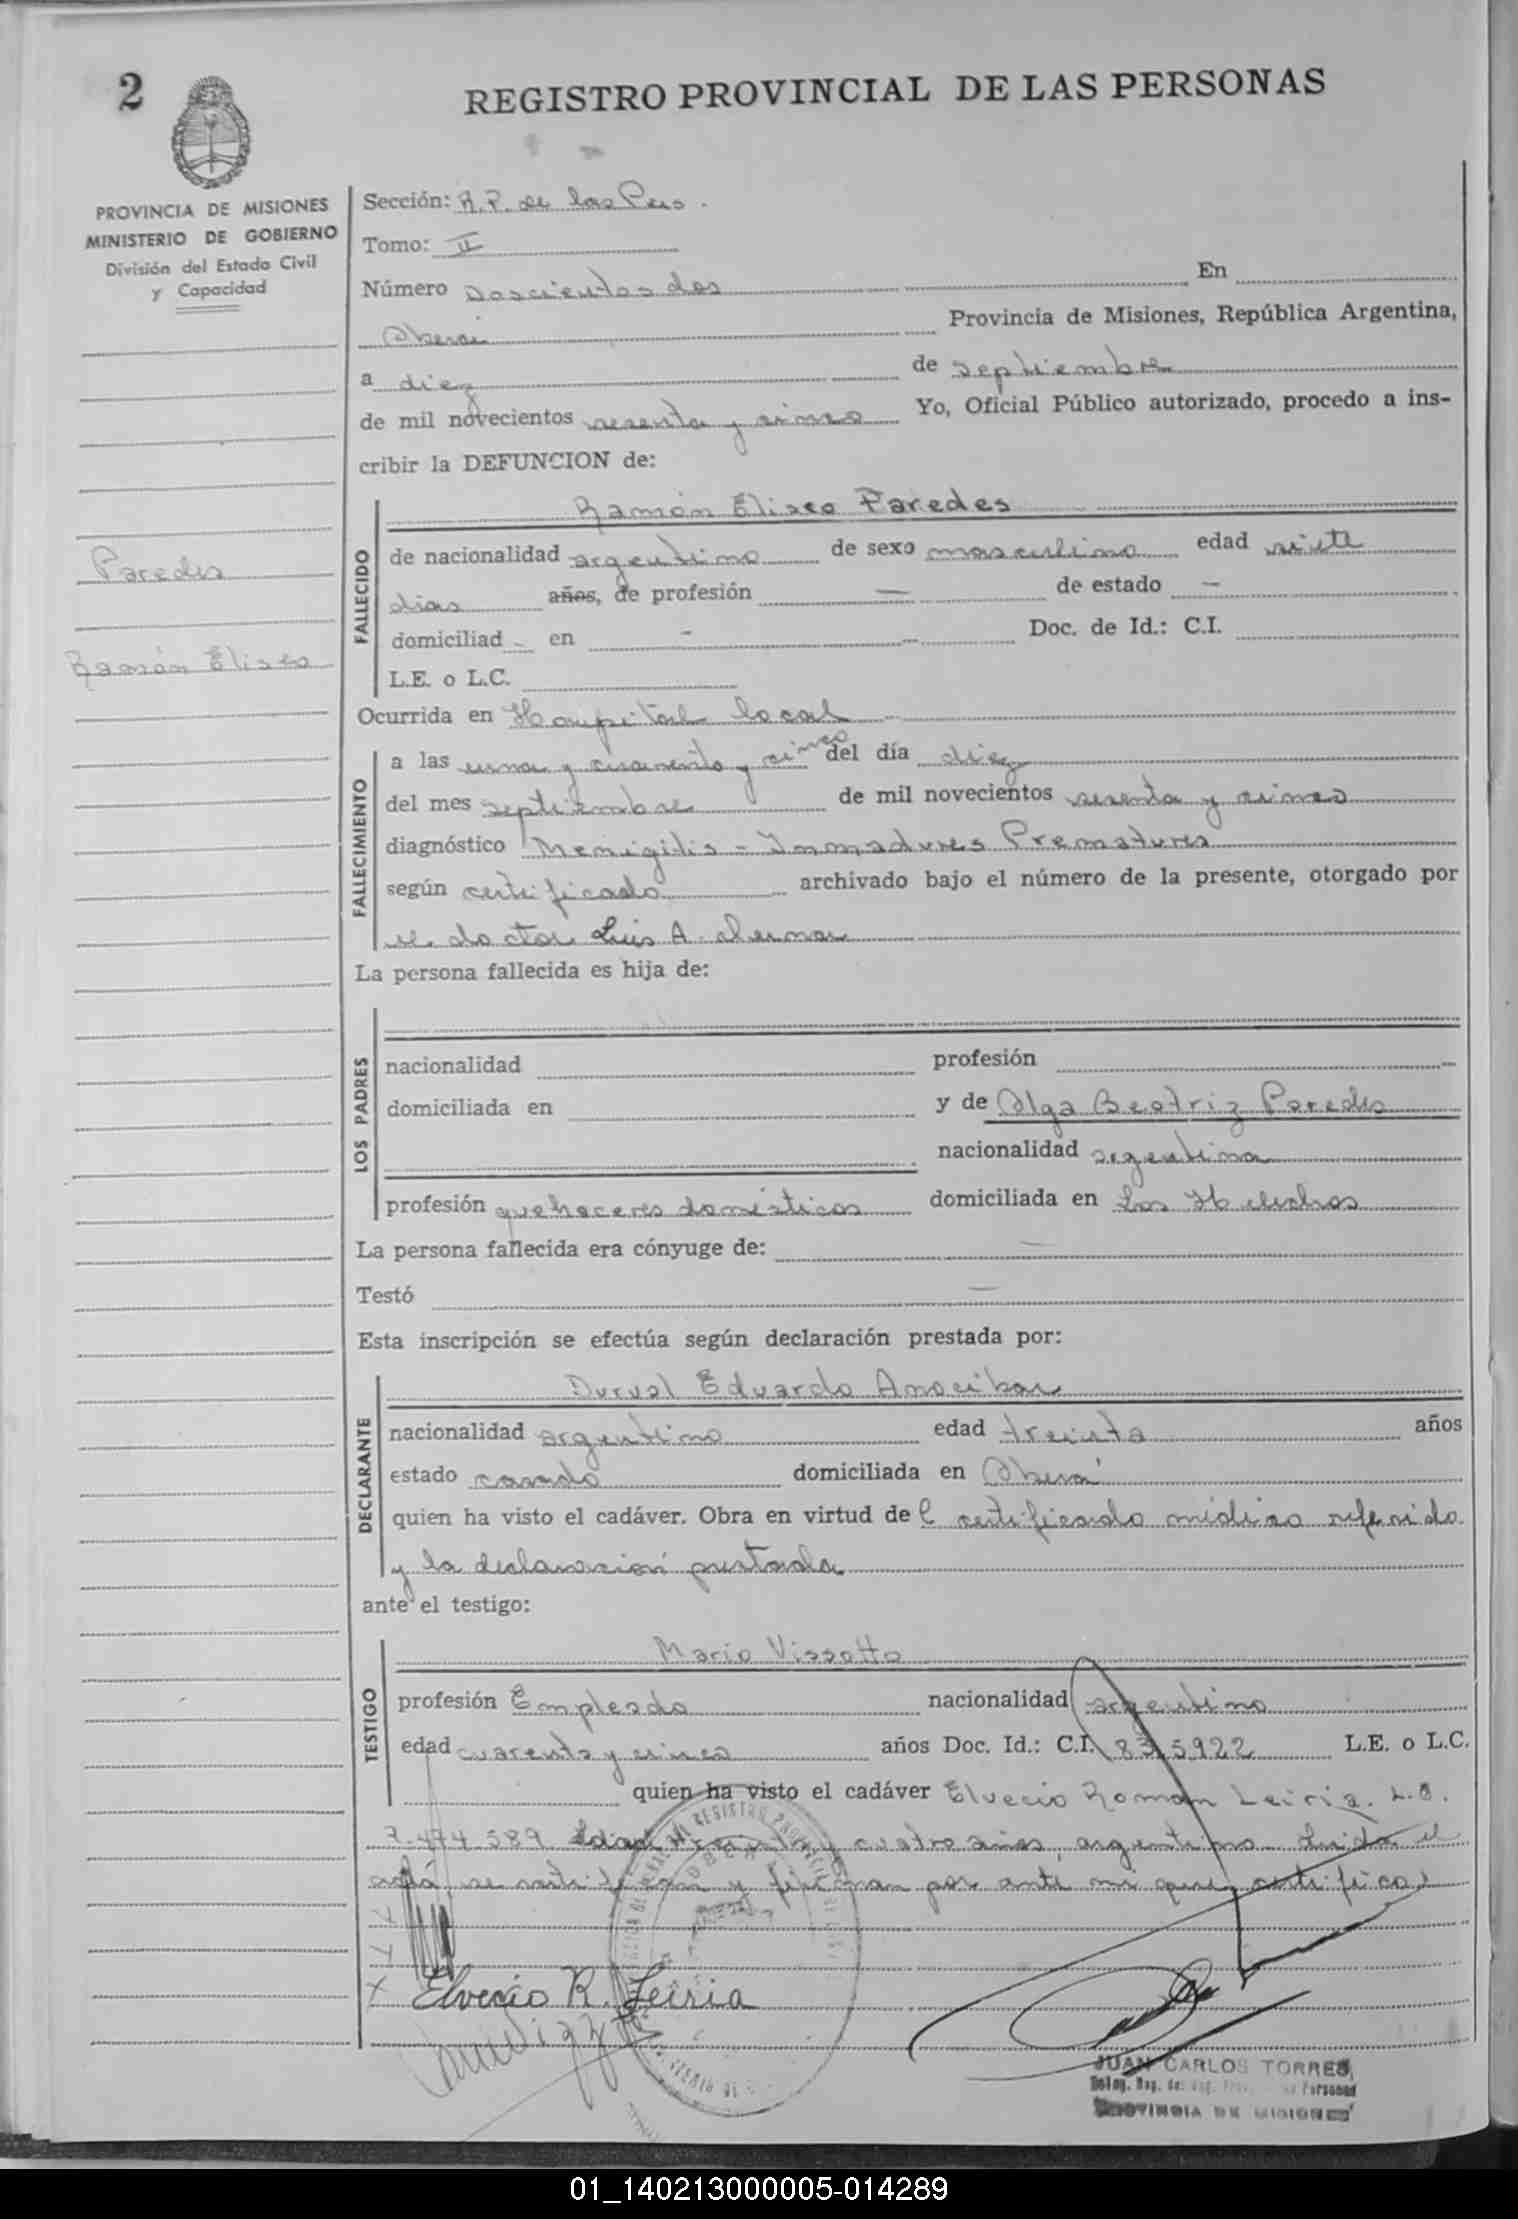 2
REGISTRO PROVINCIAL DE LAS PERSONAS
PROVINCIA DE MISIONES
MINISTERIO DE GOBIERNO
División del Estado Civil
y Capacidad
Paredes
Ramón Eliseo
Sección: R.P. de las Pers.
Tomo: II
Número Doscientos dos En
Oberá Provincia de Misiones, República Argentina,
a diez de septiembre
de mil novecientos sesenta y cinco Yo, Oficial Público autorizado, procedo a ins-
cribir la DEFUNCION de:
FALLECIDO
Ramón Eliseo Paredes
de nacionalidad argentino de sexo masculino edad siete
dias años, de profesión — de estado —
domiciliad - en - Doc. de Id.: C.I.
L.E. o L.C.
Ocurrida en Hospital local
FALLECIMIENTO
a las una y cuarenta y cinco del día diez
del mes septiembre de mil novecientos sesenta y cinco
diagnóstico Menigitis - Inmadures Prematures
según certificado archivado bajo el número de la presente, otorgado por
el doctor Luis A.
La persona fallecida es hija de:
LOS PADRES
nacionalidad profesión
domiciliada en y de Olga Beatriz Paredes
nacionalidad argentina
profesión quehaceres domésticos domiciliada en Los Helechos
La persona fallecida era cónyuge de: —
Testó —
Esta inscripción se efectúa según declaración prestada por:
DECLARANTE
Durval Eduardo Amocibar
nacionalidad argentino edad treinta años
estado casado domiciliada en Oberá
quien ha visto el cadáver. Obra en virtud del certificado médico referido
y la declaración prestada
ante el testigo:
TESTIGO
Mario Vissotto
profesión Empleado nacionalidad argentino
edad cuarenta y cinco años Doc. Id.: C.I. 835922 L.E. o L.C.
quien ha visto el cadáver Elvecio Roman Leiria. L.E.
7.474.589 edad y cuatro años, argentino Leida el
acta, se ratifican y firman por ante mi que certifico
X
X
X Elvecio R. Leiria
JUAN CARLOS TORRES
PROVINCIA DE MISIONES
01_140213000005-014289